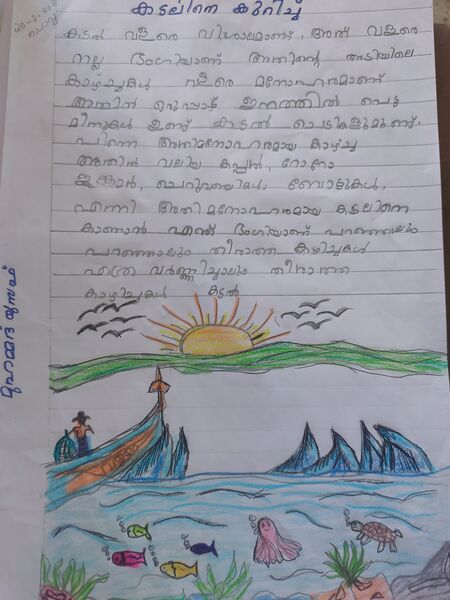 കടലിനെ കുറിച്ച്
കടൽ വളരെ വിശാലമാണ്, അത് വളരെ
നല്ല ഭംഗിയാണ് അതിന്റെ അടിയിലെ
കാഴ്ച്ചകൾ വളരെ മനോഹരമാണ്
അതിൽ ഒരുപ്പാട് ഇനത്തിൽ പെട്ട
മീനുകൾ ഉണ്ട് കടൽ ചെടികളുമുണ്ട്.
പിന്നെ അതിമനോഹരമായ കാഴ്ച
അതിൽ വലിയ കപ്പൽ, റോറോ
ജങ്കാർ, ചെറുവഞ്ചികൾ, ബോട്ടുകൾ,
എന്നീ അതിമനോഹരമായ കടലിനെ
കാണാൻ എന്ത് ഭംഗിയാണ് പറഞ്ഞാലും
പറഞ്ഞാലും തീരാത്ത കഴിച്ചകൾ
എത്ര വർണ്ണിച്ചാലും തീരാത്ത
കാഴിച്ചകൾ കടൽ